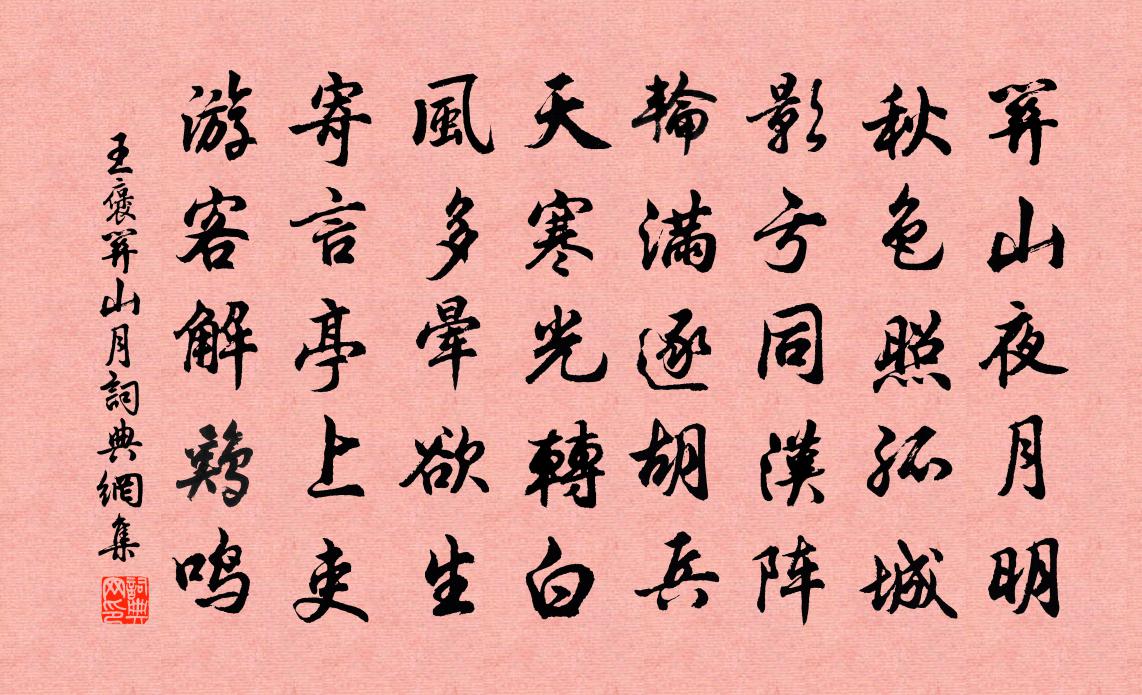 關山夜月明
秋色照孤城
影亏同漢阵
輪滿逐胡兵
天寒光轉白
風多暈欲生
寄言亭上吏
游客解鷄鳴
王褒關山月詞典網集
詞典網印